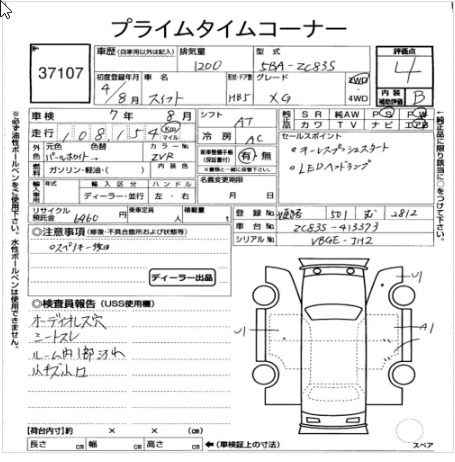 プライムタイムコーナー
37107
車歴 (自家用以外は記入)
排気量
型式
評価点
1200
5BA-ZC83S
4
初度登録年月
車名
形状・ドア数
グレード
2WD
・
4WD
4/8月
スイフト
HB5
XG
内装
補助評価
B
車検 7年 8月
シフト
AT
純正
SR 純AW PS PW
カワ TV ナビ エアB
走行 108,154 Km マイル
冷房
AC
セールスポイント
外色
元色
色替
カラーNo.
パールホワイト→
ZVR
新車整備手帳
(保証書付)
有・無
※書類と一緒に保管下さい。
・キーレスプッシュスタート
・LEDヘッドランプ
燃料
ガソリン・軽油・( )
内装色
輸入車用
年式
輸入区分
ハンドル
ディーラー・並行
左・右
名義変更期限
月 日
リサイクル
預託金
6960 円
乗車定員
人
積載量
t
登録No.
姫路 501 む 2812
車台No.
ZC83S-413373
シリアルNo.
VBGE-JH2
◎注意事項 (修復・不具合箇所および状態等)
○スペアキー欠品
ディーラー出品
◎検査員報告 (USS使用欄)
オーディオレス穴
シートスレ
ルーム内1部汚れ
小キズ小凹
U1
U1
A1
【荷台内寸】約 × × (cm)
長さ cm 幅 cm 高さ cm
←(車検証上の寸法)
スペア
※必ず油性ボールペンをご使用下さい。水性ボールペンは使用できません。
←純正品に限り該当に○をつけて下さい。